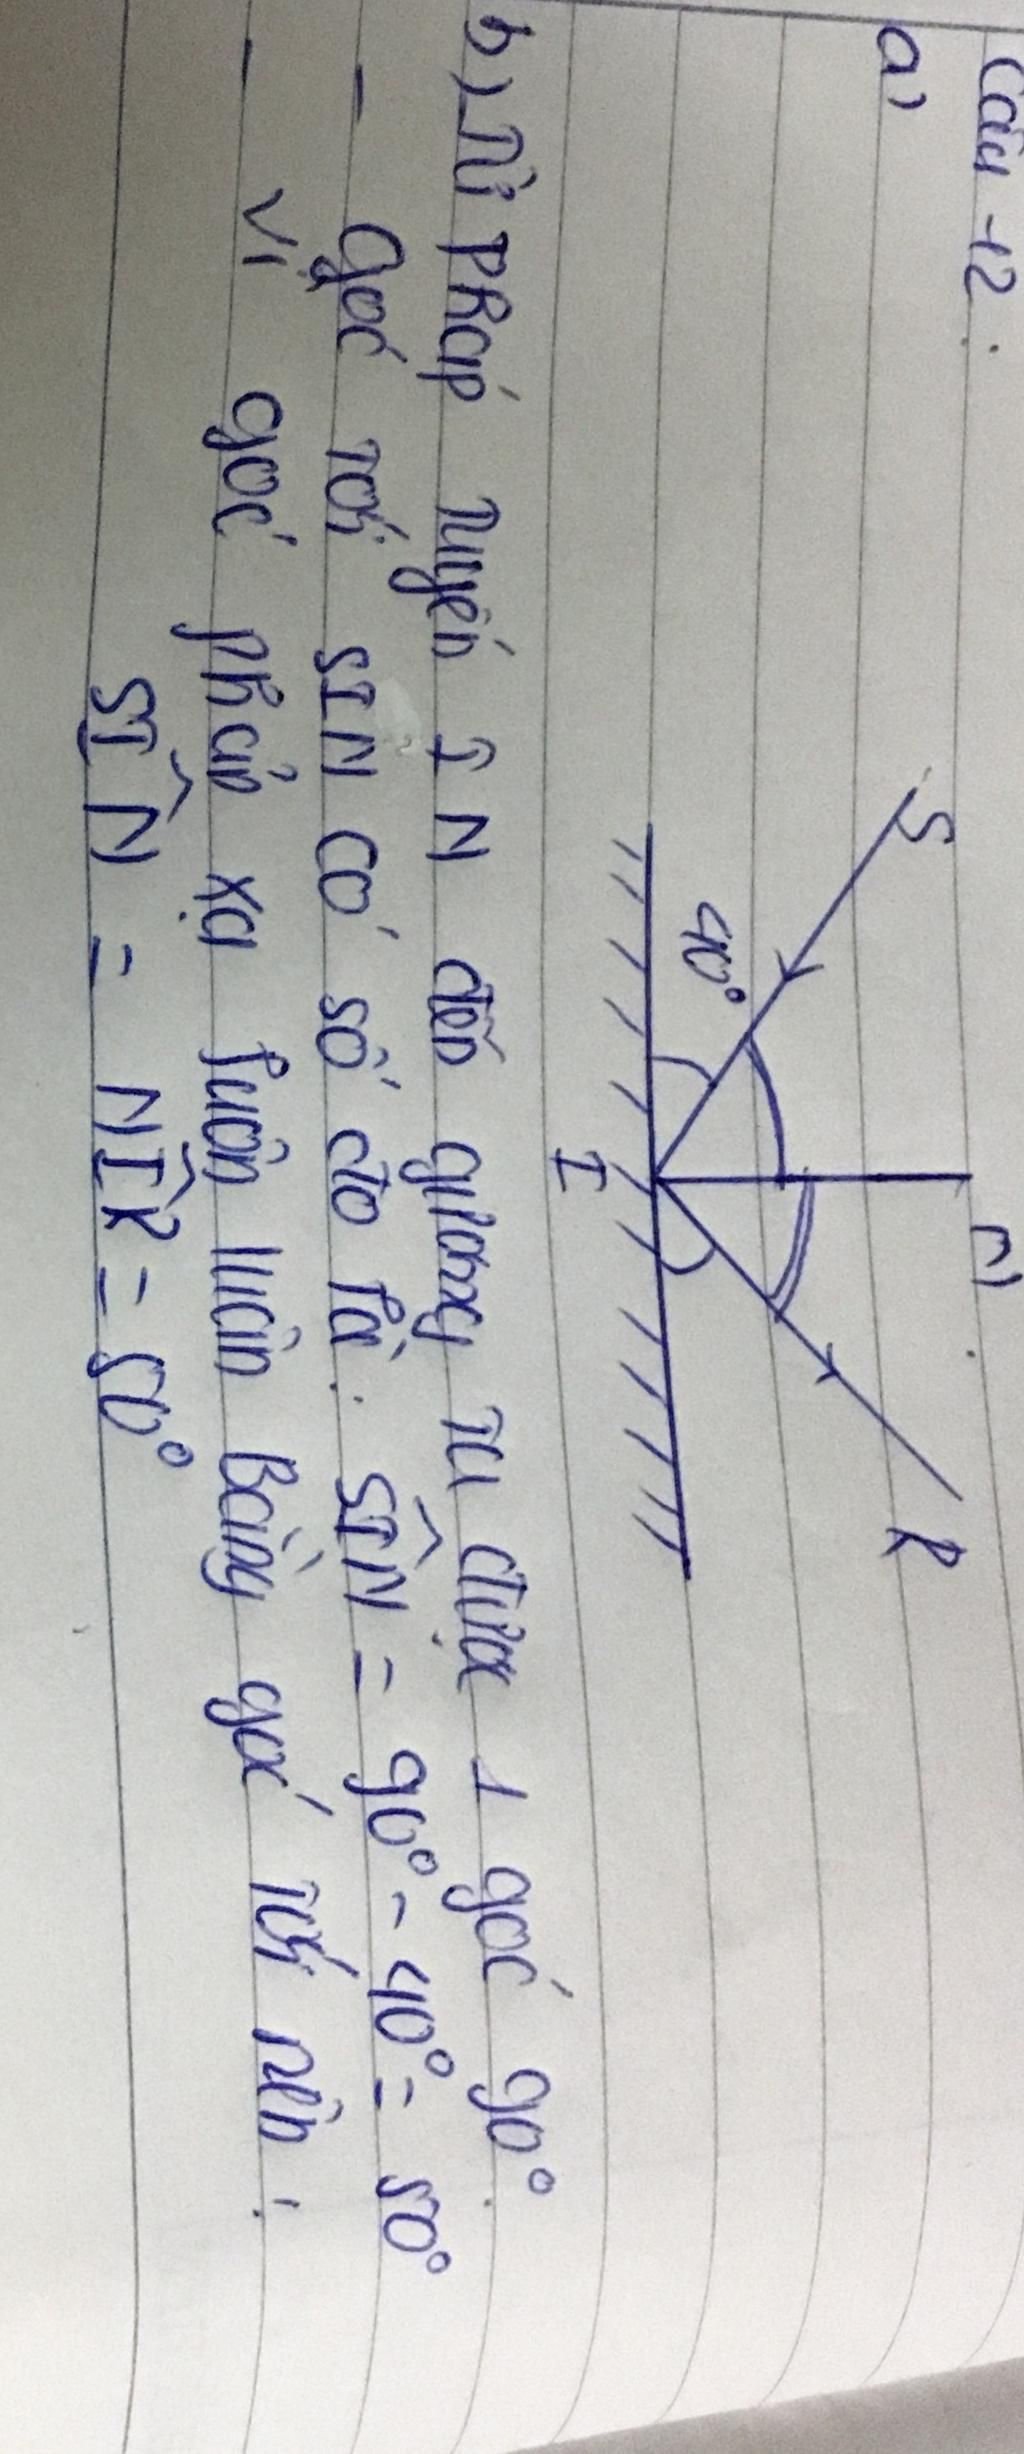 Câu 12:
a)
S
N
R
40°
I
b) Từ pháp tuyến IN đến gương ta được 1 góc 90°.
- Góc tới SIN có số đo là: SI^N = 90° - 40° = 50°
- Vì góc phản xạ luôn luôn bằng góc tới nên:
SI^N = NI^R = 50°